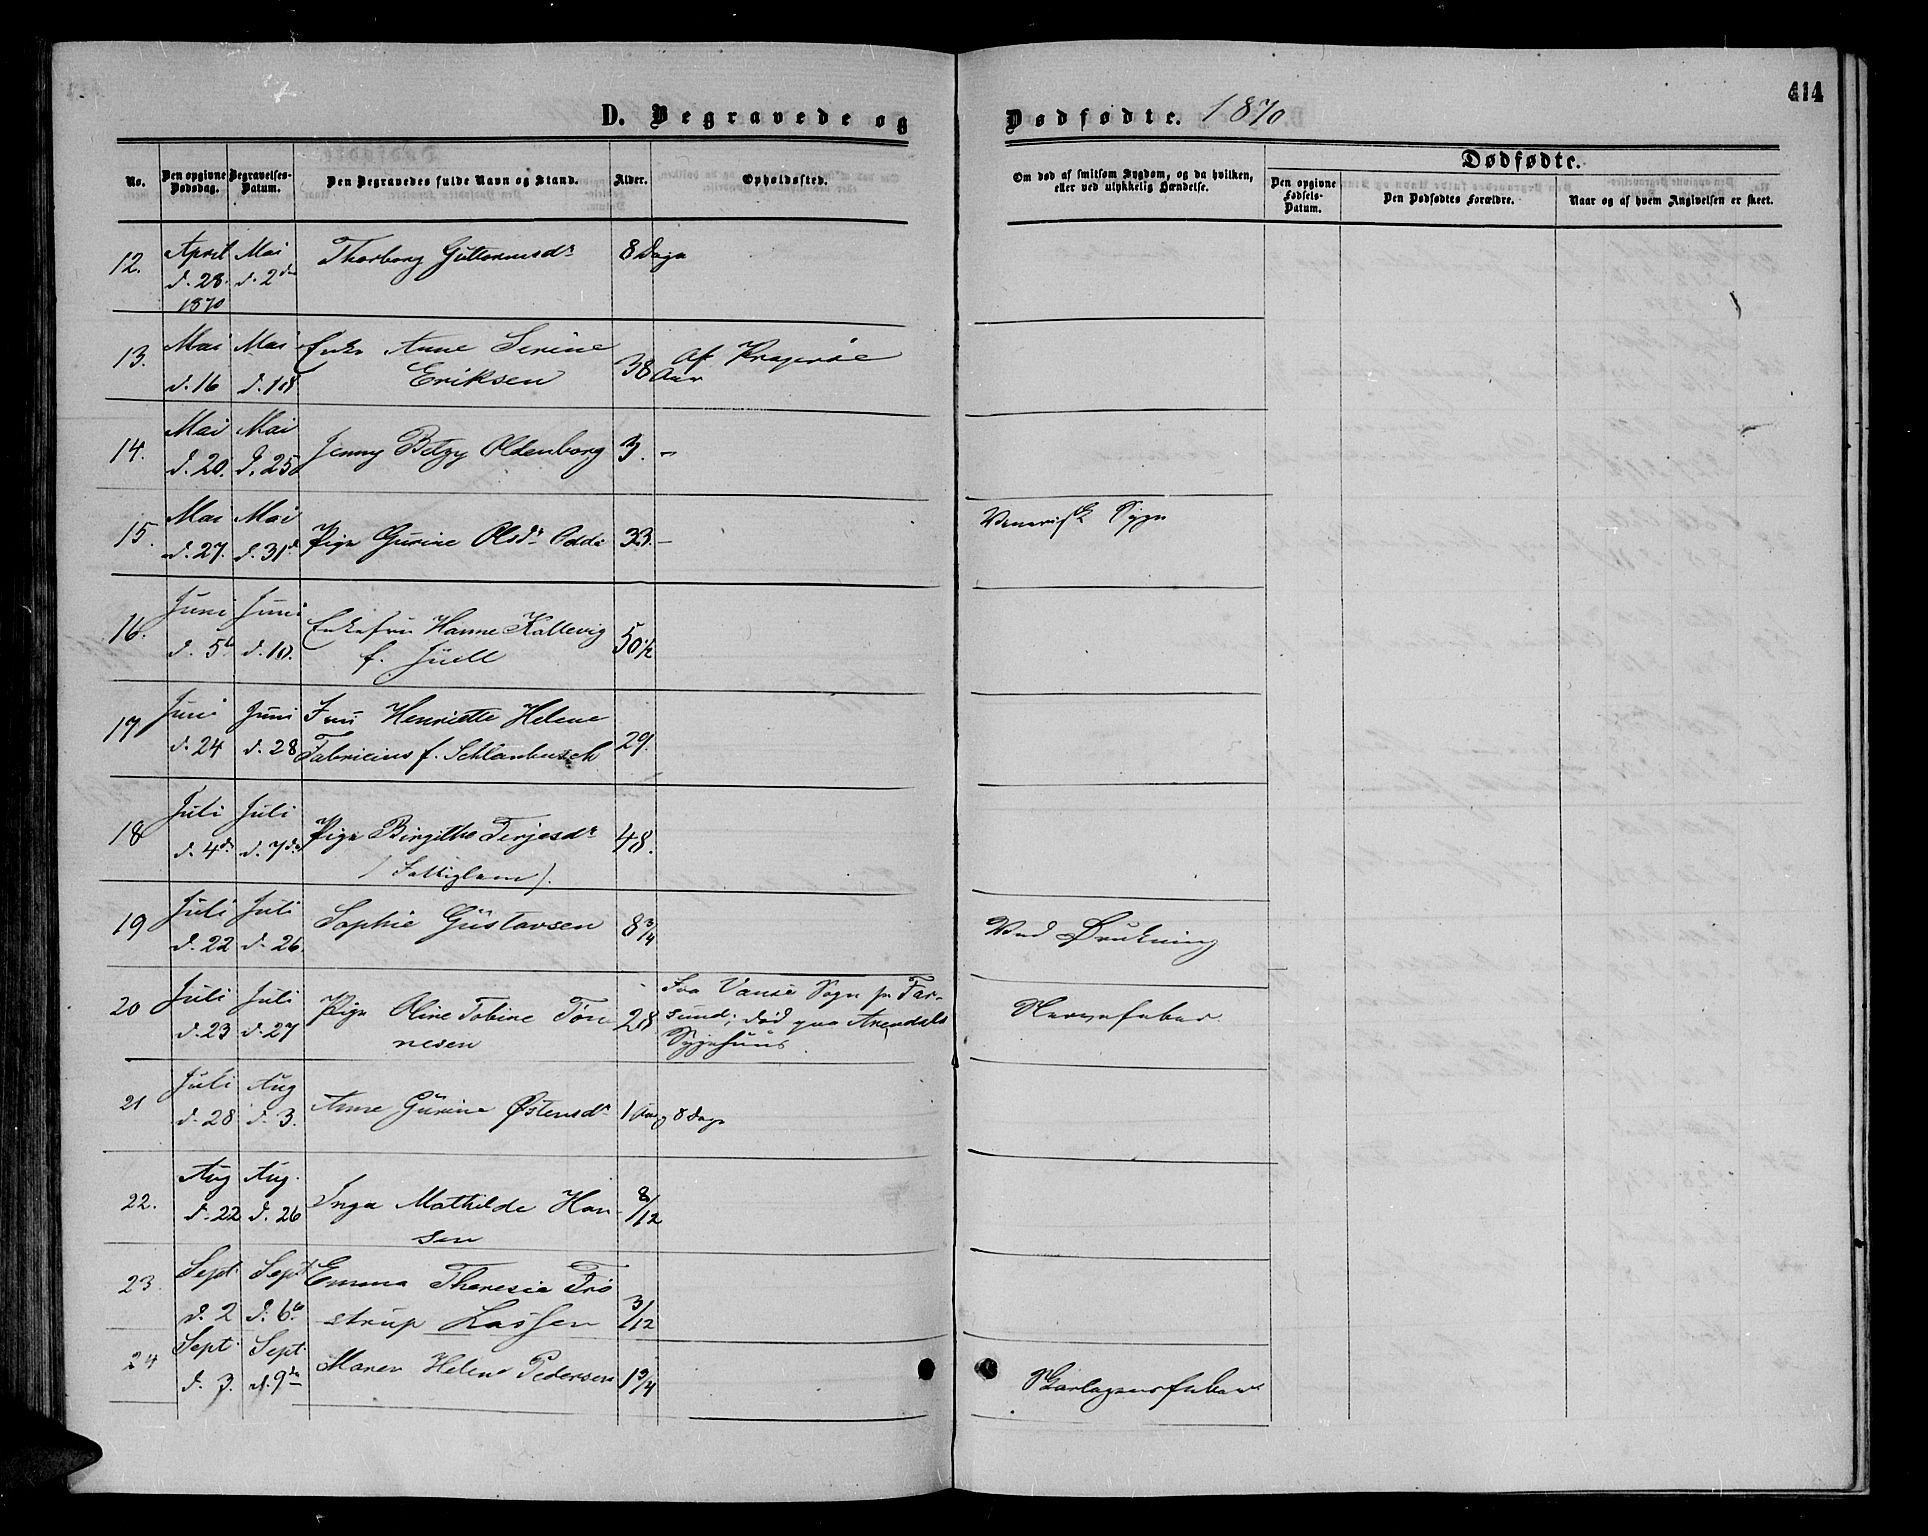 414
D. Begravede og Dødfødte. 1870
No. Den opgivne Dødsdag. Begravelses-Datum. Den Begravedes fulde Navn og Stand. Alder. Opholdssted. Om død af smitsom Sygdom, og da hvilken, eller ved ulykkelig Hændelse. Dødfødte.
Den opgivne Fødsels-Datum. Den Dødfødtes Forældre. Naar og af hvem Angivelsen er skeet.
12. April d. 28. 1870 Mai d. 2den Thorborg Guttormsdr 8 Dage
13. Mai d. 16 Mai d. 18 Enke Anne Serine Eriksen 38 Aar Af Kragerøe
14. Mai d. 20. Mai d. 25 Jenny Betzy Oldenborg 3. –
15. Mai d. 27. Mai d. 31 Pige Gurine Olsdr Odde 33. – Venerisk Syge
16. Juni d. 5te Juni d. 10. Enkefru Hanne Kallevig f. Juell 50 1/2
17 Juni d. 24 Juni d. 28 Fru Henriette Helene Fabricius f. Schlanbusch 29.
18 Juli d. 4de Juli d. 7de Pige Birgithe Terjesdr (Fattiglem). 48.
19 Juli d. 22 Juli d. 26. Sophie Gustavsen 8 3/4 Ved Drukning
20 Juli d. 23 Juli d. 27 Pige Oline Tobine Tønnesen 28 Fra Vanse Sogn pr Farsund; død paa Arendals Sygehuus. Nervefeber.
21 Juli d. 28 Aug d. 3. Anne Gurine Østensdr 1 Aar, 8 Dage
22. Aug d. 22 Aug. d. 26 Inga Mathilde Hansen 8/12
23. Sept d. 2 Sept d. 6te Emma Theresie Trøstrup Lassen 3/12
24 Sept. d. 3. Sept. d. 9de Maren Helene Pedersen 1 3/4 Skarlagensfeber